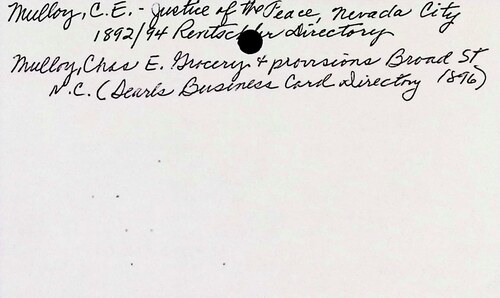 Mulloy, C.E. - Justice of the Peace, Nevada City
1892/94 Directory
Mulloy, Chas E. Grocery + provisions Broad St
N.C. (Dearls Business Card Directory 1896)